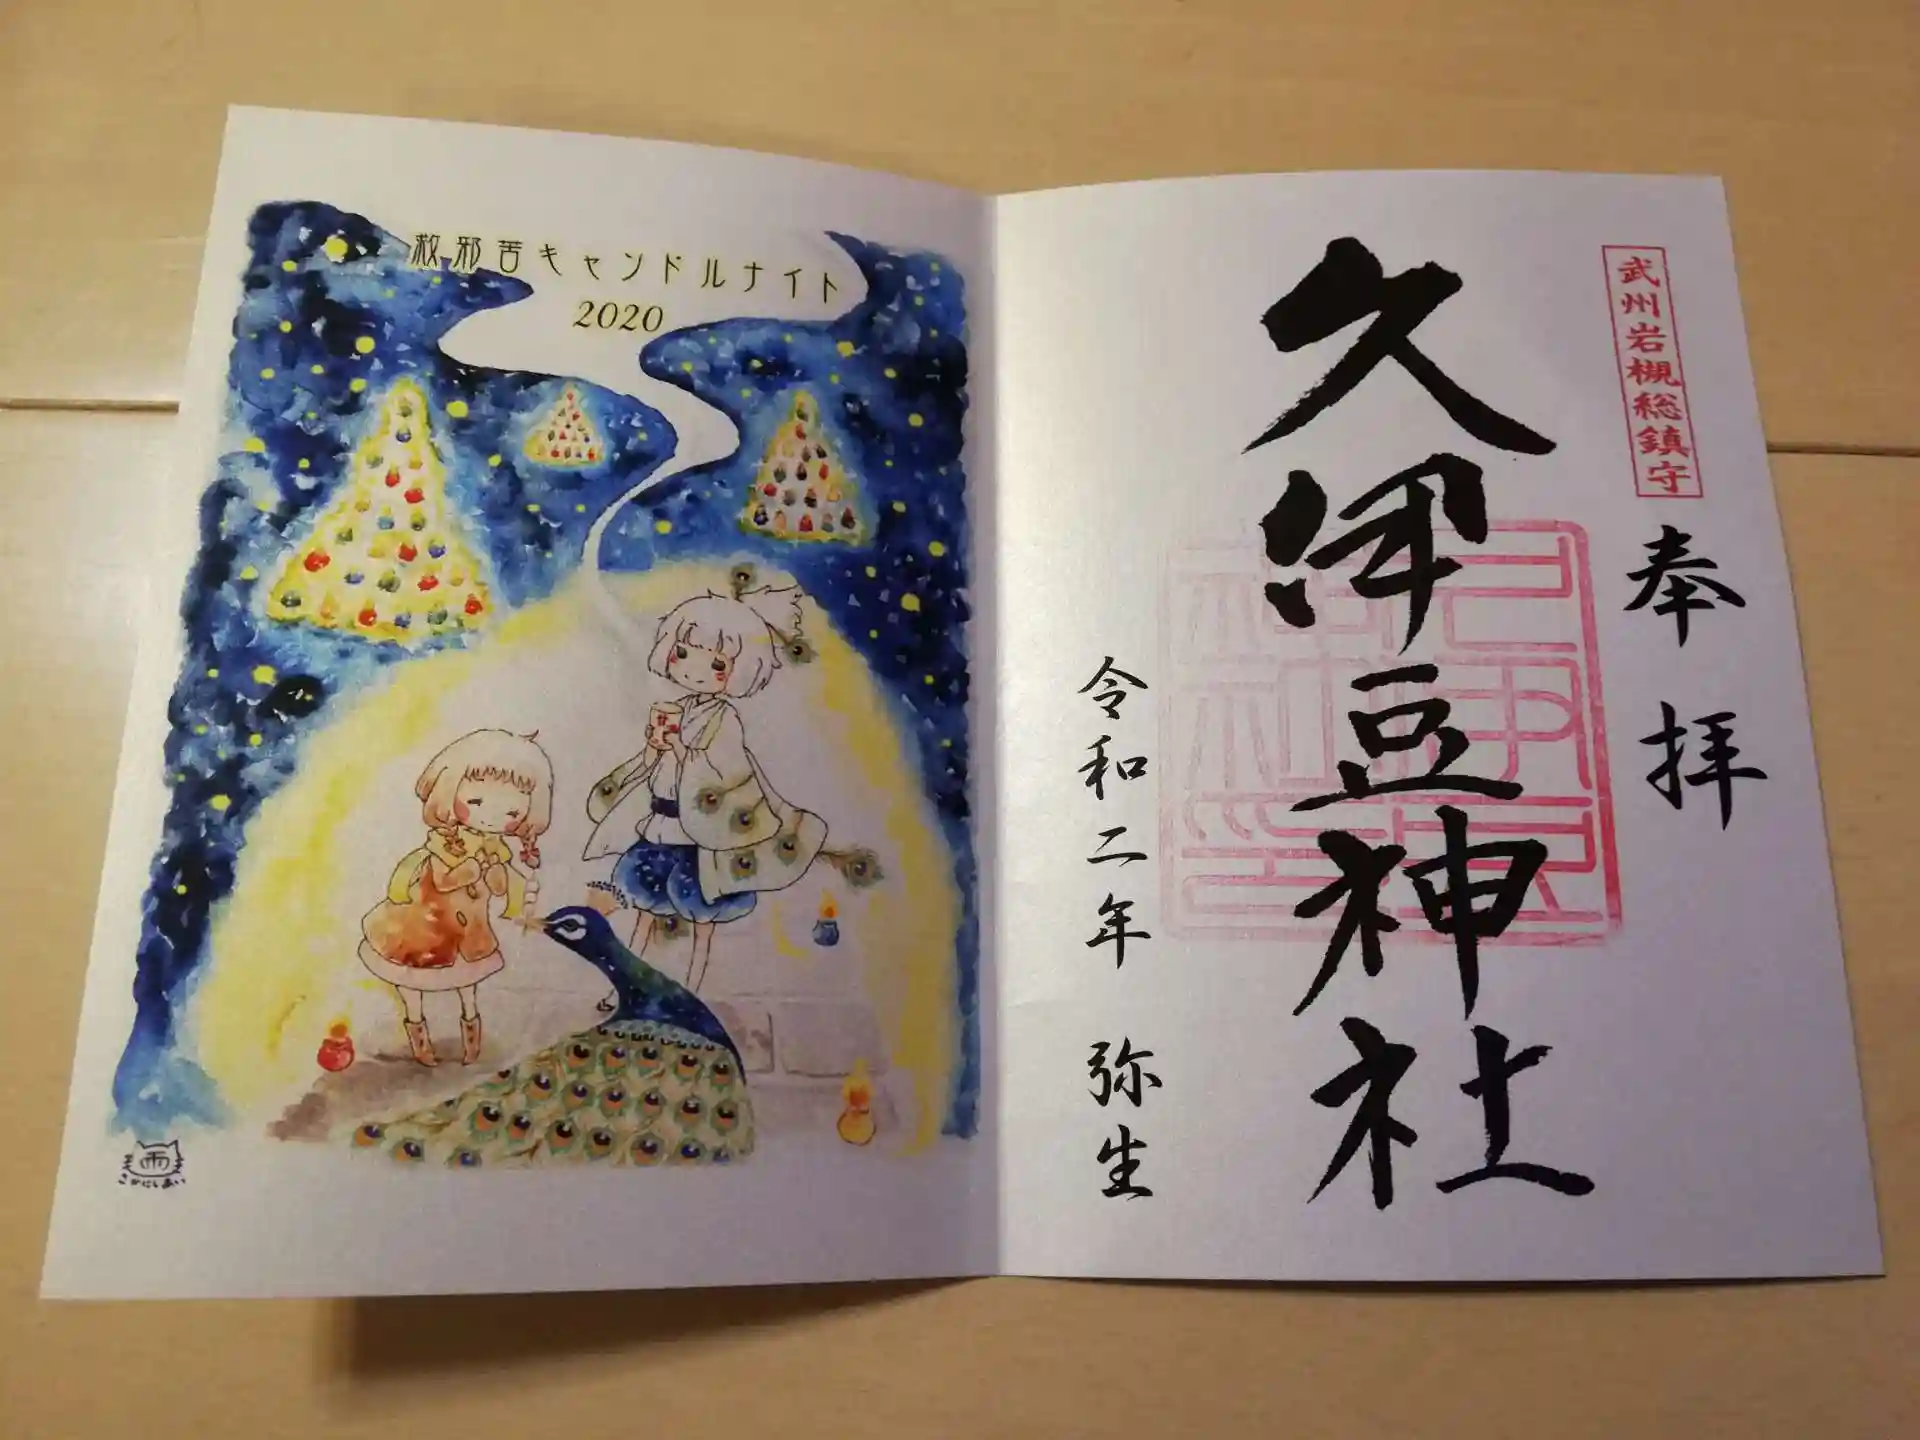 救邪苦キャンドルナイト
2020
雨
こかにしあい
武州岩槻総鎮守
奉拝
久伊豆神社
令和二年 弥生